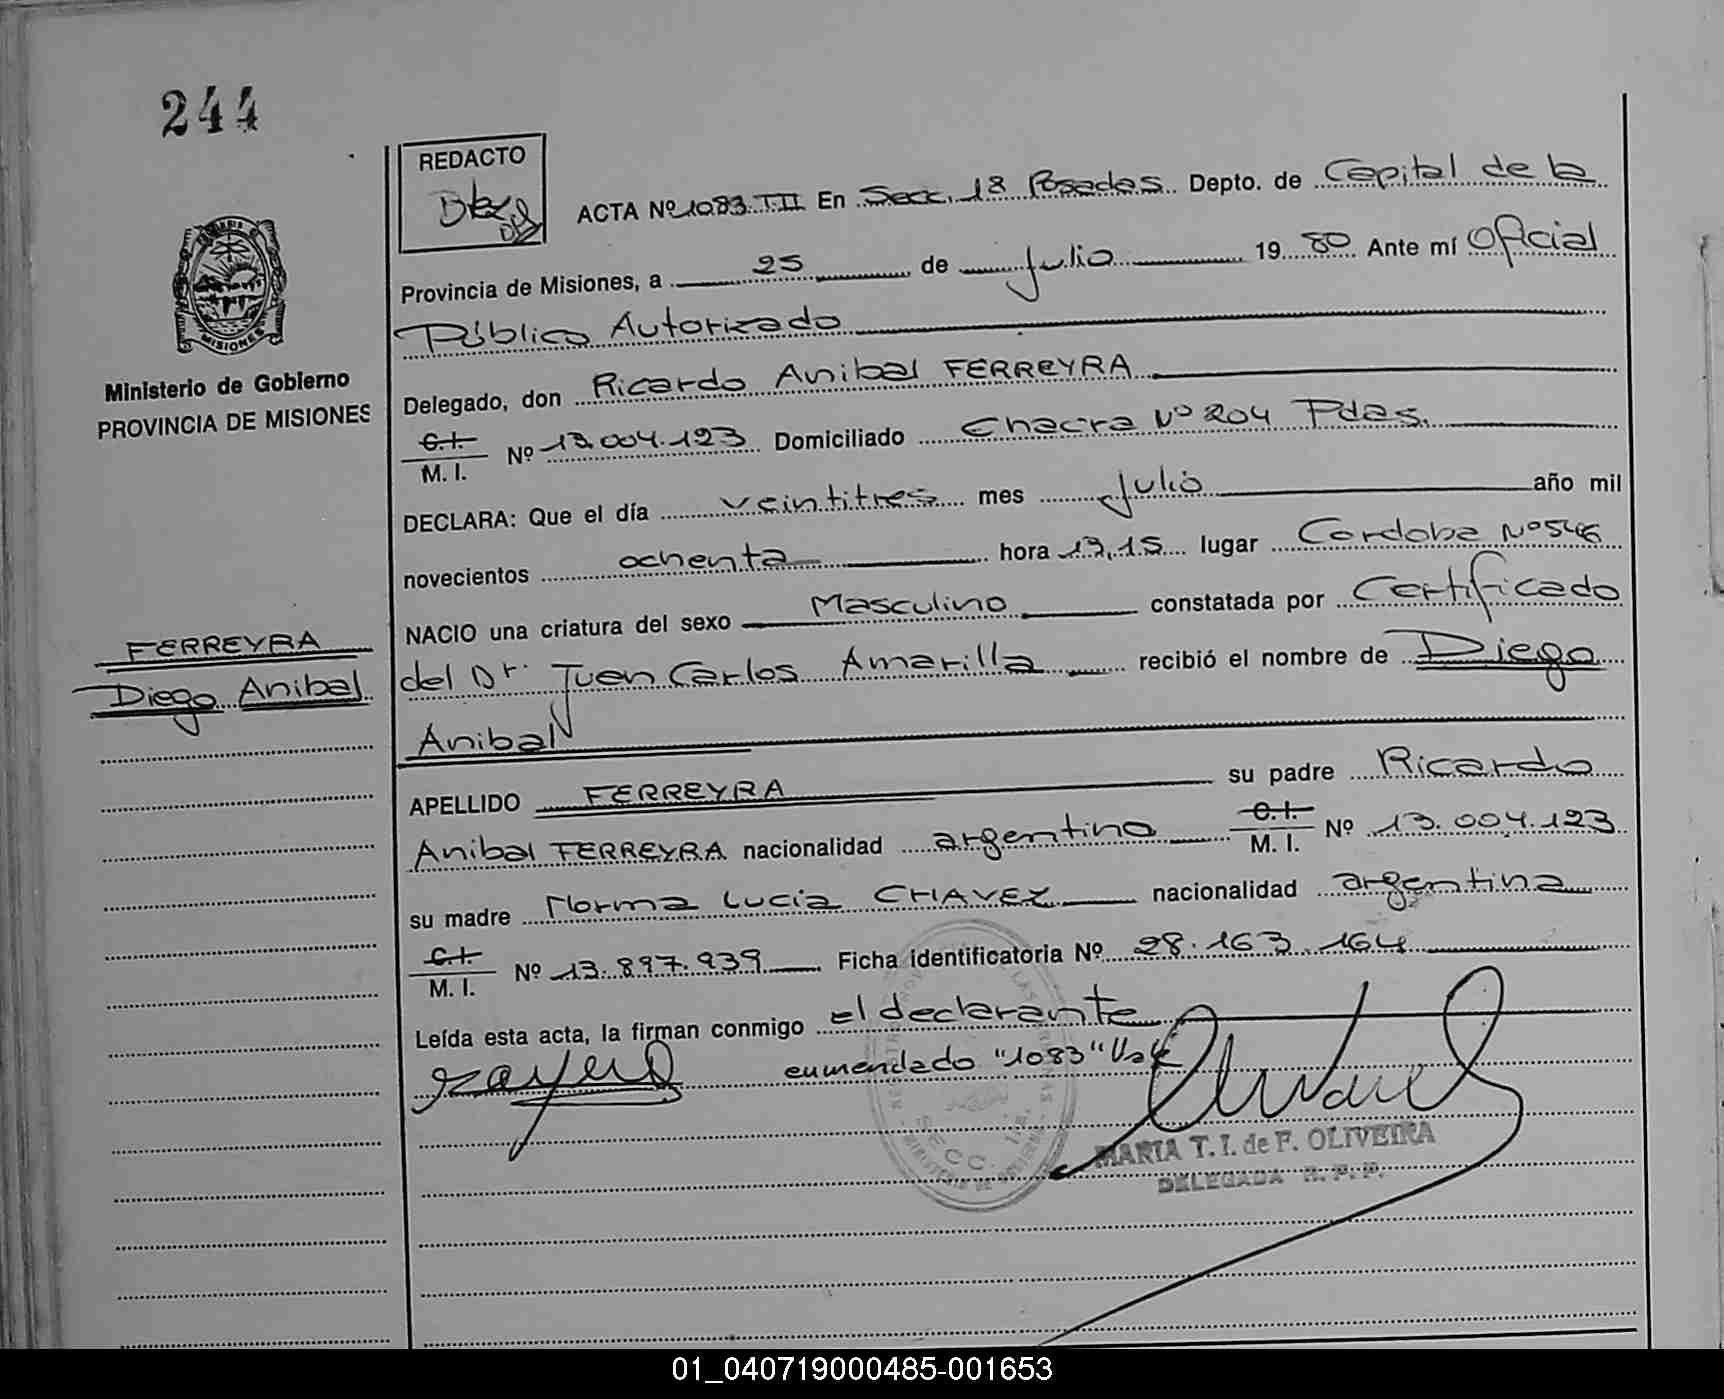 244
REDACTO
ACTA Nº 1083 T II En Secc. 1ª Posadas Depto. de Capital de la
Provincia de Misiones, a 25 de julio 1980 Ante mí Oficial
Público Autorizado
Delegado, don Ricardo Anibal FERREYRA
C.I. M. I. Nº 13.004.123 Domiciliado Chacra Nº 204 Pdas.
DECLARA: Que el día veintitres mes julio año mil
novecientos ochenta hora 13,15 lugar Cordoba Nº 546
NACIO una criatura del sexo Masculino constatada por Certificado
del Dr. Juan Carlos Amarilla recibió el nombre de Diego
Anibal
APELLIDO FERREYRA su padre Ricardo
Anibal FERREYRA nacionalidad argentino C.I. M. I. Nº 13.004.123
su madre Norma Lucia CHAVEZ nacionalidad argentina
C.I. M. I. Nº 13.897.939 Ficha identificatoria Nº 28.163.164
Leída esta acta, la firman conmigo el declarante
enmendado "1083" Vale
MARIA T. I. de F. OLIVEIRA
DELEGADA R. P. P.
SECC. 1ª
MISIONES
Ministerio de Gobierno
PROVINCIA DE MISIONES
FERREYRA
Diego Anibal
01_040719000485-001653